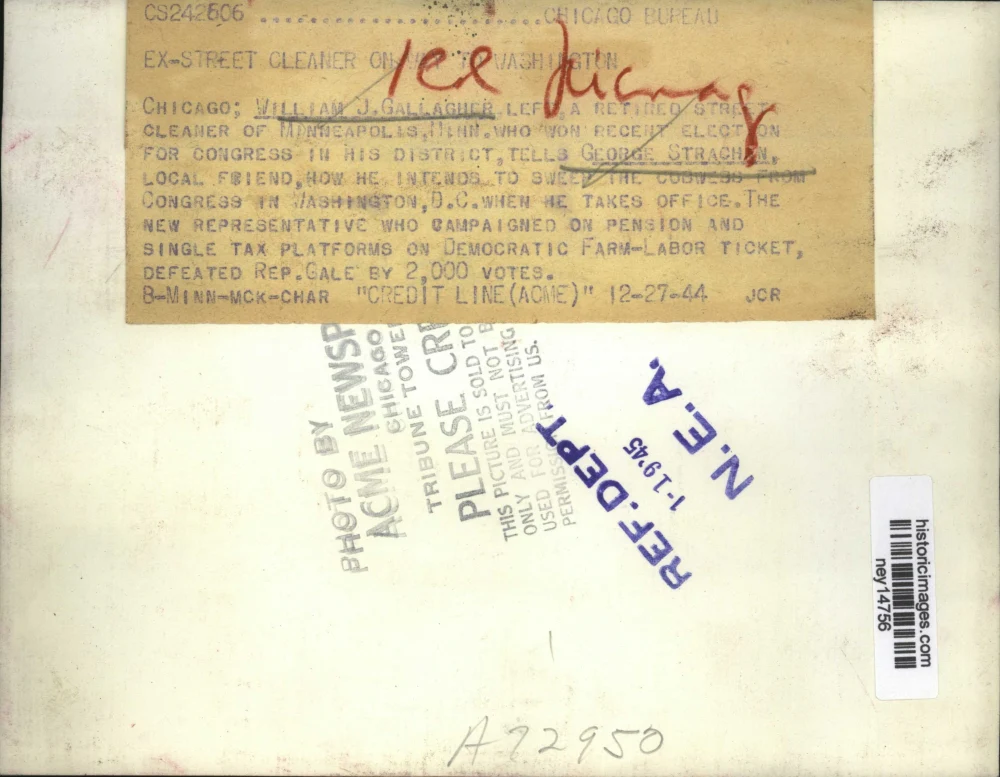 CS242506 ........................CHICAGO BUREAU
EX-STREET CLEANER ON WAY TO WASHINGTON
CHICAGO; WILLIAM J.GALLAGHER,LEFT,A RETIRED STREET
CLEANER OF MINNEAPOLIS,MINN.WHO WON RECENT ELECTION
FOR CONGRESS IN HIS DISTRICT,TELLS GEORGE STRACHAN,
LOCAL FRIEND,HOW HE INTENDS TO SWEEP THE COBWEBS FROM
CONGRESS IN WASHINGTON,D.C.WHEN HE TAKES OFFICE.THE
NEW REPRESENTATIVE WHO CAMPAIGNED ON PENSION AND
SINGLE TAX PLATFORMS ON DEMOCRATIC FARM-LABOR TICKET,
DEFEATED REP.GALE BY 2,000 VOTES.
B-MINN-MCK-CHAR "CREDIT LINE(ACME)" 12-27-44 JCR
PHOTO BY
ACME NEWSP
CHICAGO
TRIBUNE TOWE
PLEASE CRE
THIS PICTURE IS SOLD TO
ONLY AND MUST NOT B
USED FOR ADVERTISING
PERMISS FROM US.
REF. DEPT.
1-19'45
N. E. A.
historicimages.com
ney14756
A72950